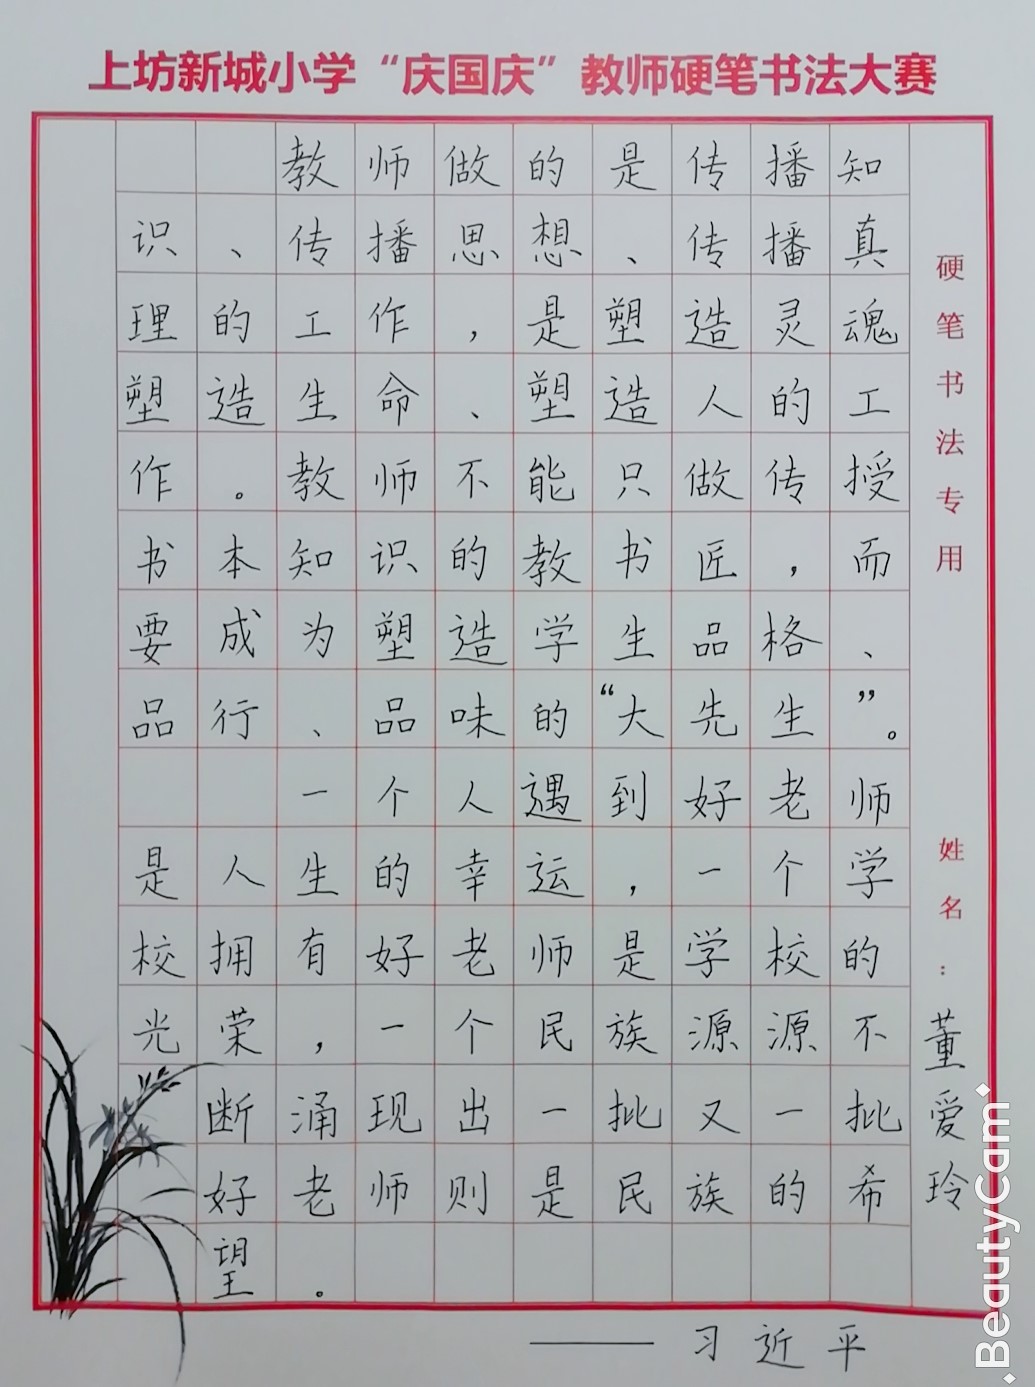 上坊新城小学“庆国庆”教师硬笔书法大赛
教师做的是传播知
识、传播思想、传播真
理的工作,是塑造灵魂
塑造生命、塑造人的工
作。教师不能只做传授
书本知识的教书匠,而
要成为塑造学生品格、
品行、品味的“大先生”。
一个人遇到好老师
是人生的幸运,一个学
校拥有好老师是学校的
光荣,一个民族源源不
断涌现出一批又一批
好老师则是民族的希
望。
——习近平
硬笔书法专用
姓名:董爱玲
BeautyCam